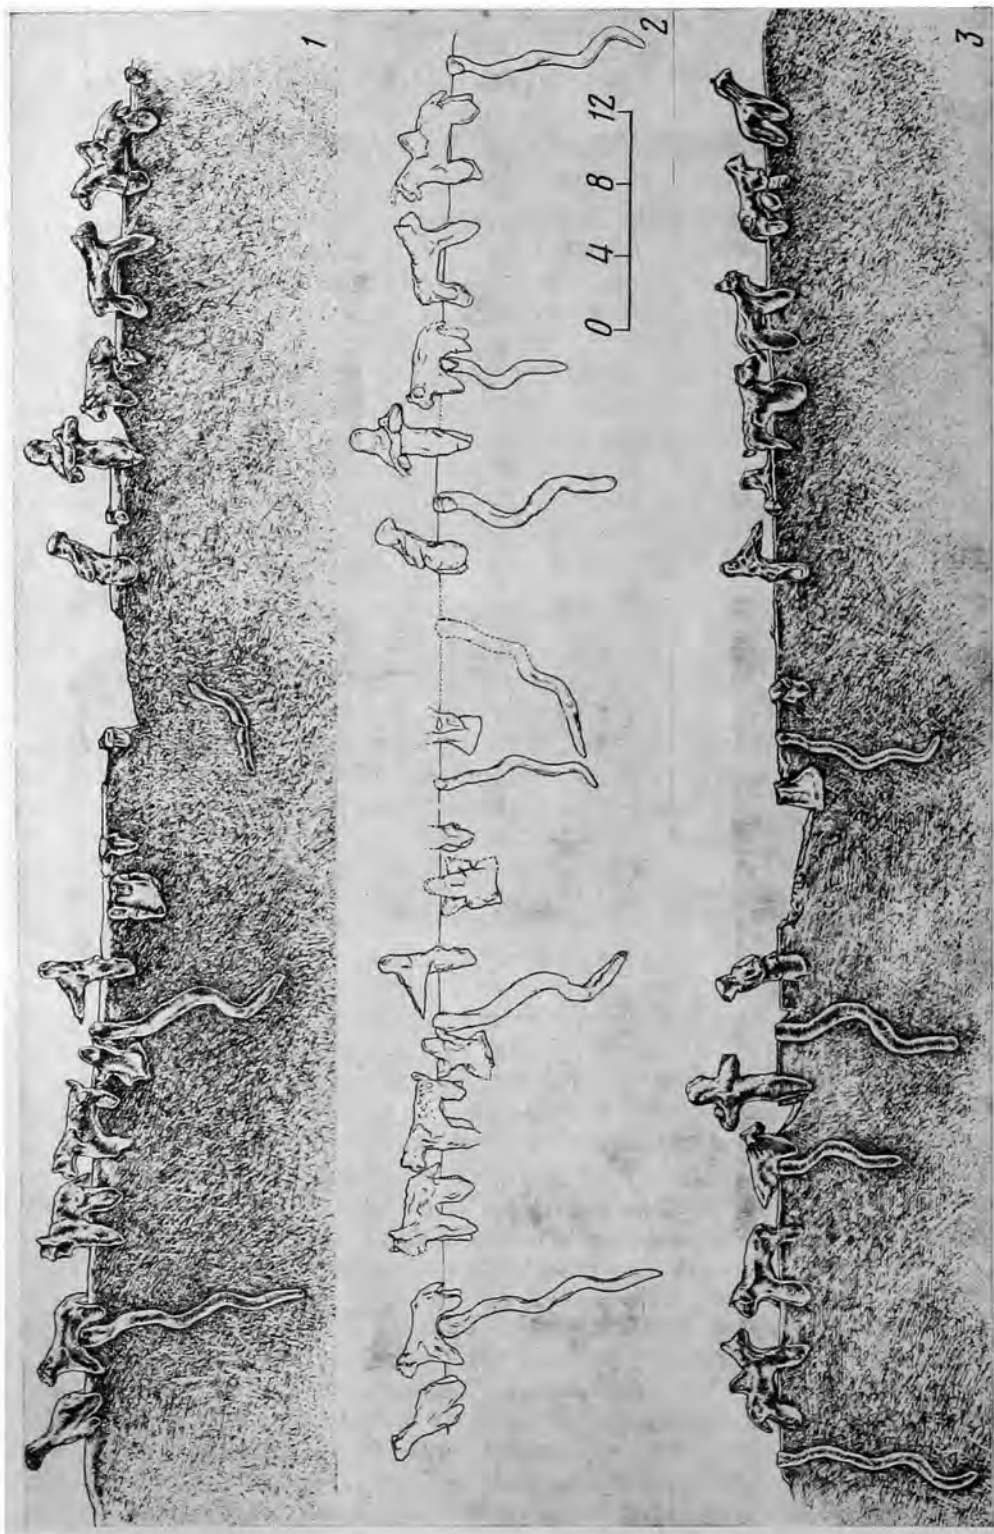 1
2
0 4 8 12
3